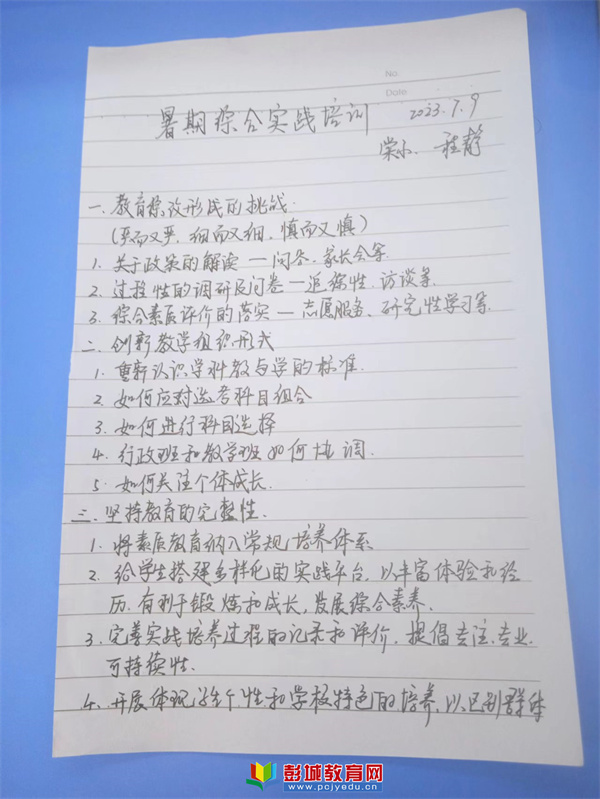 No
Date
暑期综合实战培训
2023.7.9
棠小 程静
一、教育综改形民的挑战
(严而又严,细而又细,慎而又慎)
1. 关于政策的解读—问答、家长会等
2. 过程性的调研及问卷—追踪性、访谈等
3. 综合素质评价的落实—志愿服务、研究性学习等
二、创新教学组织形式
1. 重新认识学科教与学的标准.
2. 如何应对选考科目组合
3. 如何进行科目选择
4. 行政班和教学班如何协调
5. 如何关注个体成长.
三、坚持教育的完整性.
1. 将素质教育纳入常规培养体系
2. 给学生搭建多样化的实践平台,以丰富体验和经
历.有利于锻炼和成长,发展综合素养.
3. 完善实战培养过程的记录和评价,提倡专注、专业、
可持续性.
4. 开展体现学生个性和学校特色的培养,以区别群体
彭城教育网
www.pcjyedu.cn